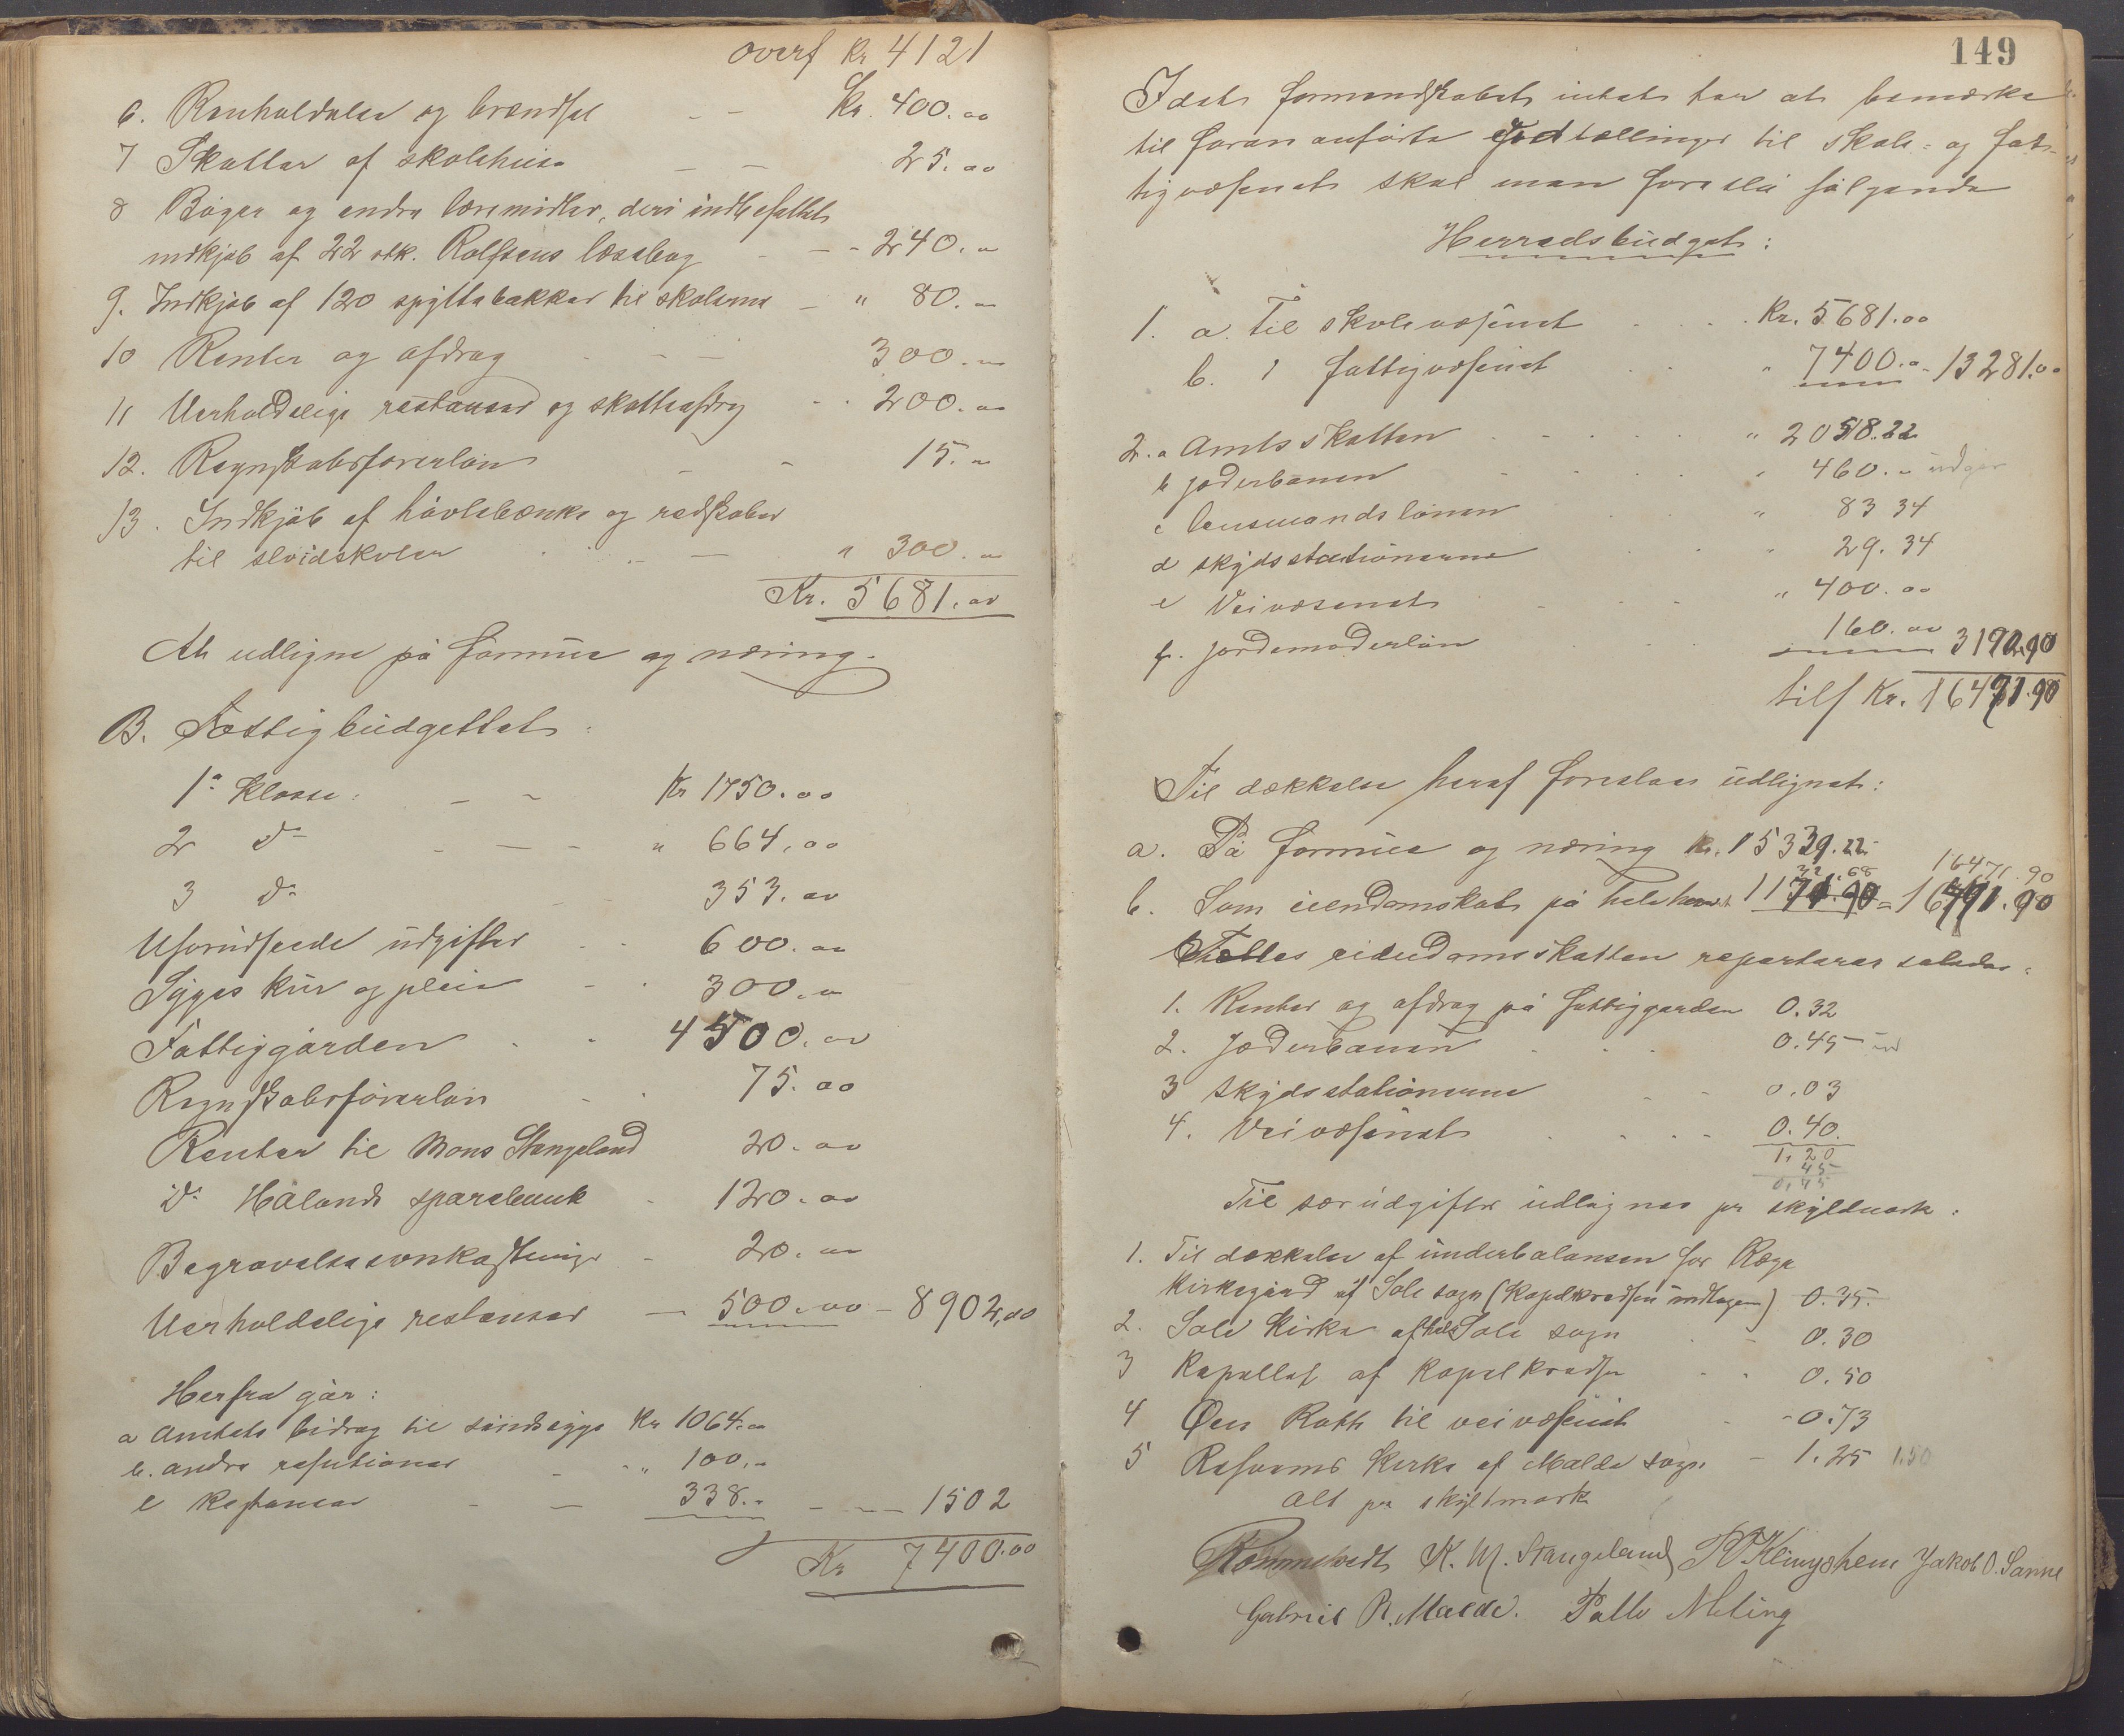 overf Kr 4121
6. Renholdelse og brændsel - - Kr. 400.00
7 Skatter af skolehuse - - 25.00
8 Bøger og andre læremidler, deri indbefattet
indkjøb af 22 stk. Rolfsens læsebog - - 240.00
9. Indkjøb af 120 spyttebakker til skolerne - " 80.00
10 Renter og afdrag - - 300.00
11 Uerholdelige restanser og skatteafdrag - - 200.00
12. Regnskabsførerløn - - 15.00
13. Indkjøb af høvlebænke og redskaber
til sløidskolen - - " 300.00
Kr. 5681.00
At udligne på formue og næring.
B. Fattigbudgettet:
1ª Klasse: - - Kr 1750.00
2 do - - - " 664.00
3 do 353.00
Uforudseede udgifter - - 600.00
Syges kur og pleie - - 300.00
Fattiggården - - 4500.00
Regnskabsførerløn - - 75.00
Renter til Mons Stangeland 20.00
do Hålands sparebank - 120.00
Begravelsesomkostninger - 20.00
Uerholdelige restanser - 500.00 - 8902,00
Herfra går:
a Amtets bidrag til sindssyge Kr 1064.00
b. andre refusioner - - " 100.00
c Restanser - - 338.- - - 1502
Kr 7400.00
149
Idet formandskabet intet har at bemærke
til foran anførte opstillinger til skole- og fat-
tigvæsenet skal man foreslå følgende
Herredsbudget:
1. a. Til skolevæsenet . . . Kr. 5681.00
b. " fattigvæsenet . . " 7400.00 - 13281.00
2. a Amtsskatten - - - " 2058.22
b Jæderbanen - - " 460.00 udgår
c lensmandslønen . . " 83 34
d skydsstationerne . . " 29.34
e Veivæsenet - - - " 400.00
f. jordemoderløn . . 160.00 3190.90
tils Kr. 16471.90
Til dækkelse heraf foreslaes udlignet:
a. På formue og næring Kr. 15339.22
b. Som eiendomskat på hele herredet 1171.90 = 16471.90
16471.90
Fælles eiendomsskatten reparteres således:
1. Renter og afdrag på fattiggården 0.32
2. Jæderbanen . . . 0.45 ud
3 skydsstationerne - - 0.03
4. Veivæsenet . . . - 0.40.
1,20
45
0,75
Til særudgifter udlignes pr skyldmark:
1. Til dækkelse af underbalansen for Ræge
kirkegård af Sole sogn (Kapelkredsen undtagen) 0.35.
2. Sole Kirke af hele Sole sogn . - 0.30
3 Kapellet af Kapelkredsen . . 0.50
4 Øen Rott til veivæsenet - - 0.73
5 Risavigs Kirke af Malde sogn - 1.25 1.50
Alt pr skyldmark
Rommetvedt K. M. Stangeland Jakob O. Sømme
Gabriel R. Malde. Palle Meling